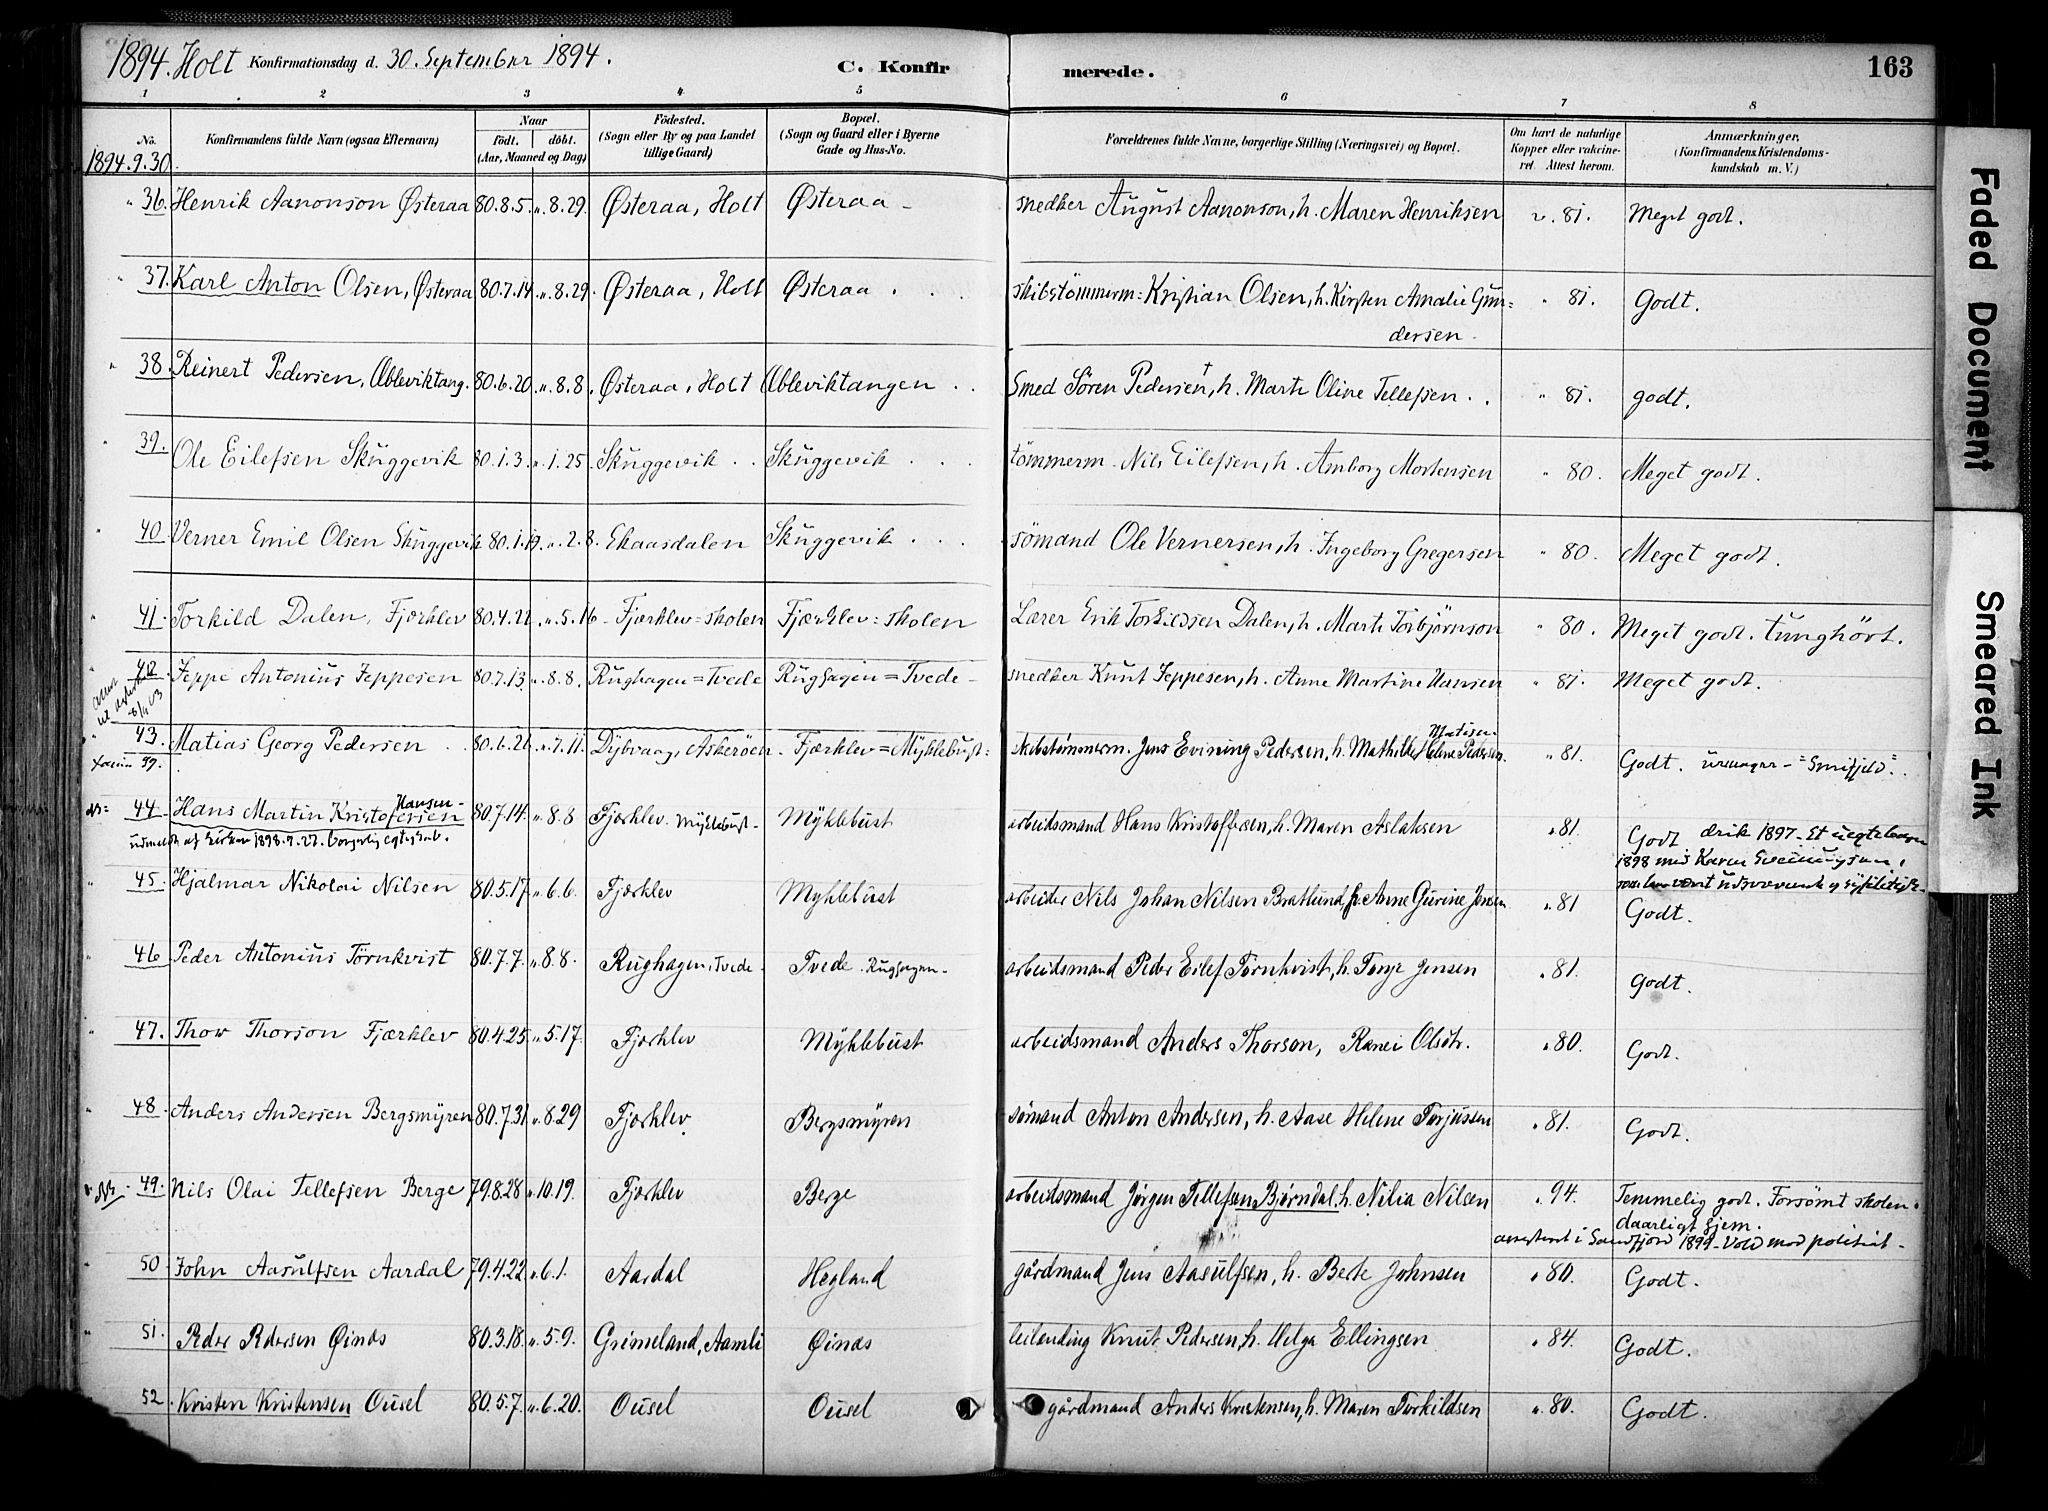 1894. Holt Konfirmationsdag d. 30. September 1894. C. Konfir merede. 163
1 2 3 4 5 6 7 8
No. Konfirmandens fulde Navn (ogsaa Efternavn) Naar födt. döbt. (Aar, Maaned og Dag) Födested. (Sogn eller By og paa Landet tillige Gaard) Bopæl. (Sogn og Gaard eller i Byerne Gade og Hus-No. Forældrenes fulde Navne, borgerlige Stilling (Næringsvei) og Bopæl. Om havt de naturlige Kopper eller vakcineret. Attest herom. Anmærkninger. (Konfirmandens Kristendomskundskab m. V.)
1894.9.30.
" 36. Henrik Aanonson Østeraa 80.8.5. ". 8.29. Østeraa, Holt Østeraa - snedker August Aanonson, h. Maren Henriksen v. 81. Meget godt.
" 37. Karl Anton Olsen, Østeraa 80.7.14. ". 8.29. Østeraa, Holt Østeraa . . . skibstömmerm: Kristian Olsen, h. Kirsten Amalie Gun=
dersen. " 81. Godt.
" 38. Reinert Pedersen, Æbleviktang. 80.6.20. ". 8.8. Østeraa, Holt Æbleviktangen . . Smed Sören Pedersen †, h. Marte Oline Tellefsen . . " 81. godt.
" 39. Ole Eilefsen Skuggevik 80.1.3. ". 1.25. Skuggevik . . Skuggevik . . . tömmerm. Nils Eilefsen, h. Amborg Mortensen " 80. Meget godt.
" 40. Verner Emil Olsen Skuggevik 80.1.19. ". 2.8. Ekaasdalen Skuggevik . . . sömand Ole Vernersen, h. Ingeborg Gregersen " 80. Meget godt.
" 41. Torkild Dalen, Fjærklev 80.4.22. ". 5.16 - Fjærklev=skolen Fjærklev=skolen Lærer Erik Torkildsen Dalen, h. Marte Torbjörnson " 80. Meget godt. tunghört.
" 42. Jeppe Antonius Jeppesen 80.7.13. ". 8.8. Rughagen=Tvede Rughagen=Tvede - snedker Knut Jeppesen, h. Anne Martine Hansen " 81. Meget godt.
" 43. Matias Georg Pedersen . . 80.6.21. ". 7.11. Dybvaag, Askerøen. Fjærklev=Myklebust= skibstømmerm. Jens Evining Pedersen, h. Mathilde Helene Pedersen. " 81. Godt.
44. Hans Martin Kristofersen Hansen - 80.7.14. ". 8.8 Fjærklev. Myklebust - Myklebust arbeidsmand Hans Kristoffersen, h. Maren Aslaksen " 81. Godt drik 1897. Et uegte barn
udmeldt af kirken 1898.9.27. borgerlig egteskab. 1898 med Karen
" 45. Hjalmar Nikolai Nilsen 80.5.17. ". 6.6. Fjærklev Myklebust arbeider Nils Johan Nilsen Bratlund, h. Anne Gurine Jensen ". 81 Godt.
" 46. Peder Antonius Törnkvist 80.7.7. ". 8.8. Rughagen, Tvede. Tvede. Rughagen - arbeidsmand Peder Eilef Törnkvist, h. Tonje Jensen ". 81. Godt.
" 47. Thow Thorson Fjærklev 80.4.25. ". 5.17. Fjærklev Myklebust arbeidsmand Anders Thorson, Ranei Olsdtr. ". 80. Godt.
" 48. Anders Andersen Bergsmyren 80.7.31 ". 8.29 Fjærklev Bergsmyren sømand Anton Andersen, h. Aase Helene Torjussen ". 81. Godt.
49. Nils Olai Tellefsen Berge 79.8.28 ". 10.19. Fjærklev Berge arbeidsmand Jørgen Tellefsen Bjørndal, h. Nilia Nilsen ". 94. Temmelig godt. Forsømt skolen.
daarligt hjem.
arresteret i Sandfjord 1899. Vold mod politiet -
" 50. John Aasulfsen Aardal 79.4.22. ". 6.1. Aardal Hegland gårdmand Jens Aasulfsen, h. Berte Johnsen ". 80. Godt.
" 51. Peder Pedersen Øinæs 80.3.18. ". 5.9. Grimeland, Aamli Øinæs leilending Knut Pedersen, h. Helga Ellingsen ". 84. Godt.
52. Kristen Kristensen Ousel 80.5.7. ". 6.20. Ousel Ousel gårdmand Anders Kristensen, h. Maren Torkildsen ". 80. Godt.
Faded Document
Smeared Ink